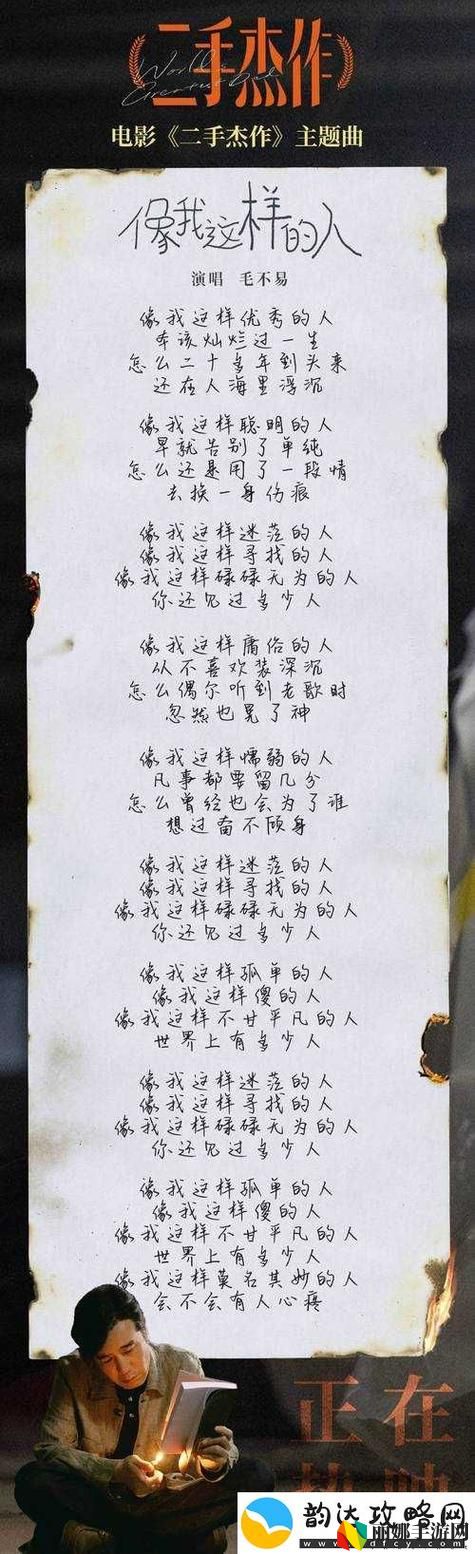 二手杰作
World's Greatest Dad
电影《二手杰作》主题曲
像我这样的人
演唱 毛不易
像我这样优秀的人
本该灿烂过一生
怎么二十多年到头来
还在人海里浮沉
像我这样聪明的人
早就告别了单纯
怎么还是用了一段情
去换一身伤痕
像我这样迷茫的人
像我这样寻找的人
像我这样碌碌无为的人
你还见过多少人
像我这样庸俗的人
从不喜欢装深沉
怎么偶尔听到老歌时
忽然也晃了神
像我这样懦弱的人
凡事都要留几分
怎么曾经也会为了谁
想过奋不顾身
像我这样迷茫的人
像我这样寻找的人
像我这样碌碌无为的人
你还见过多少人
像我这样孤单的人
像我这样傻的人
像我这样不甘平凡的人
世界上有多少人
像我这样迷茫的人
像我这样寻找的人
像我这样碌碌无为的人
你还见过多少人
像我这样孤单的人
像我这样傻的人
像我这样不甘平凡的人
世界上有多少人
像我这样莫名其妙的人
会不会有人心疼
正在
热映
韵达攻略网
丽娜手游网
www.dfcy.com